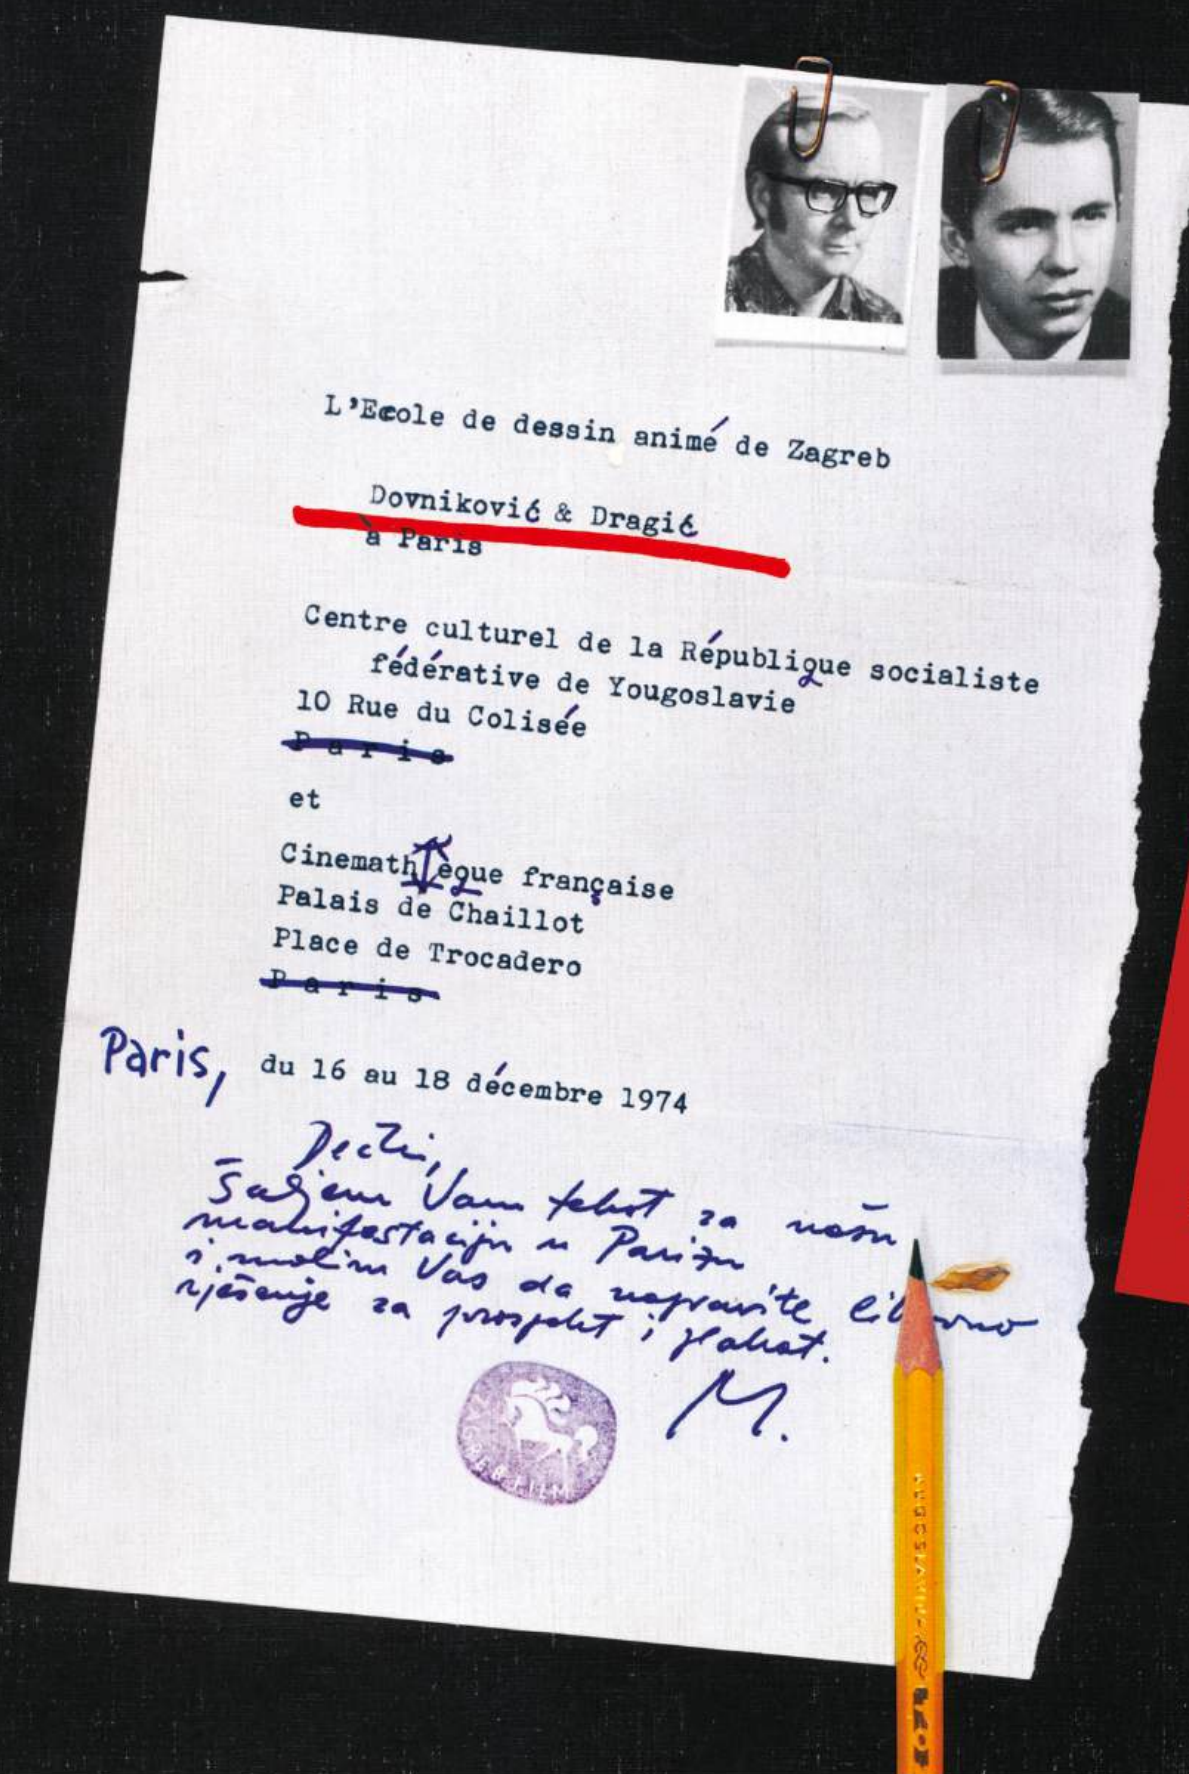 L'Ecole de dessin animé de Zagreb
Dovniković & Dragić
à Paris
Centre culturel de la République socialiste
fédérative de Yougoslavie
10 Rue du Colisée
Paris
et
Cinemathèque française
Palais de Chaillot
Place de Trocadero
Paris
Paris, du 16 au 18 décembre 1974
Šaljem Vam tekst za našu
manifestaciju u Parizu
i molim Vas da napravite
rješenje za prospekt i plakat.
M.
ZAGREB FILM